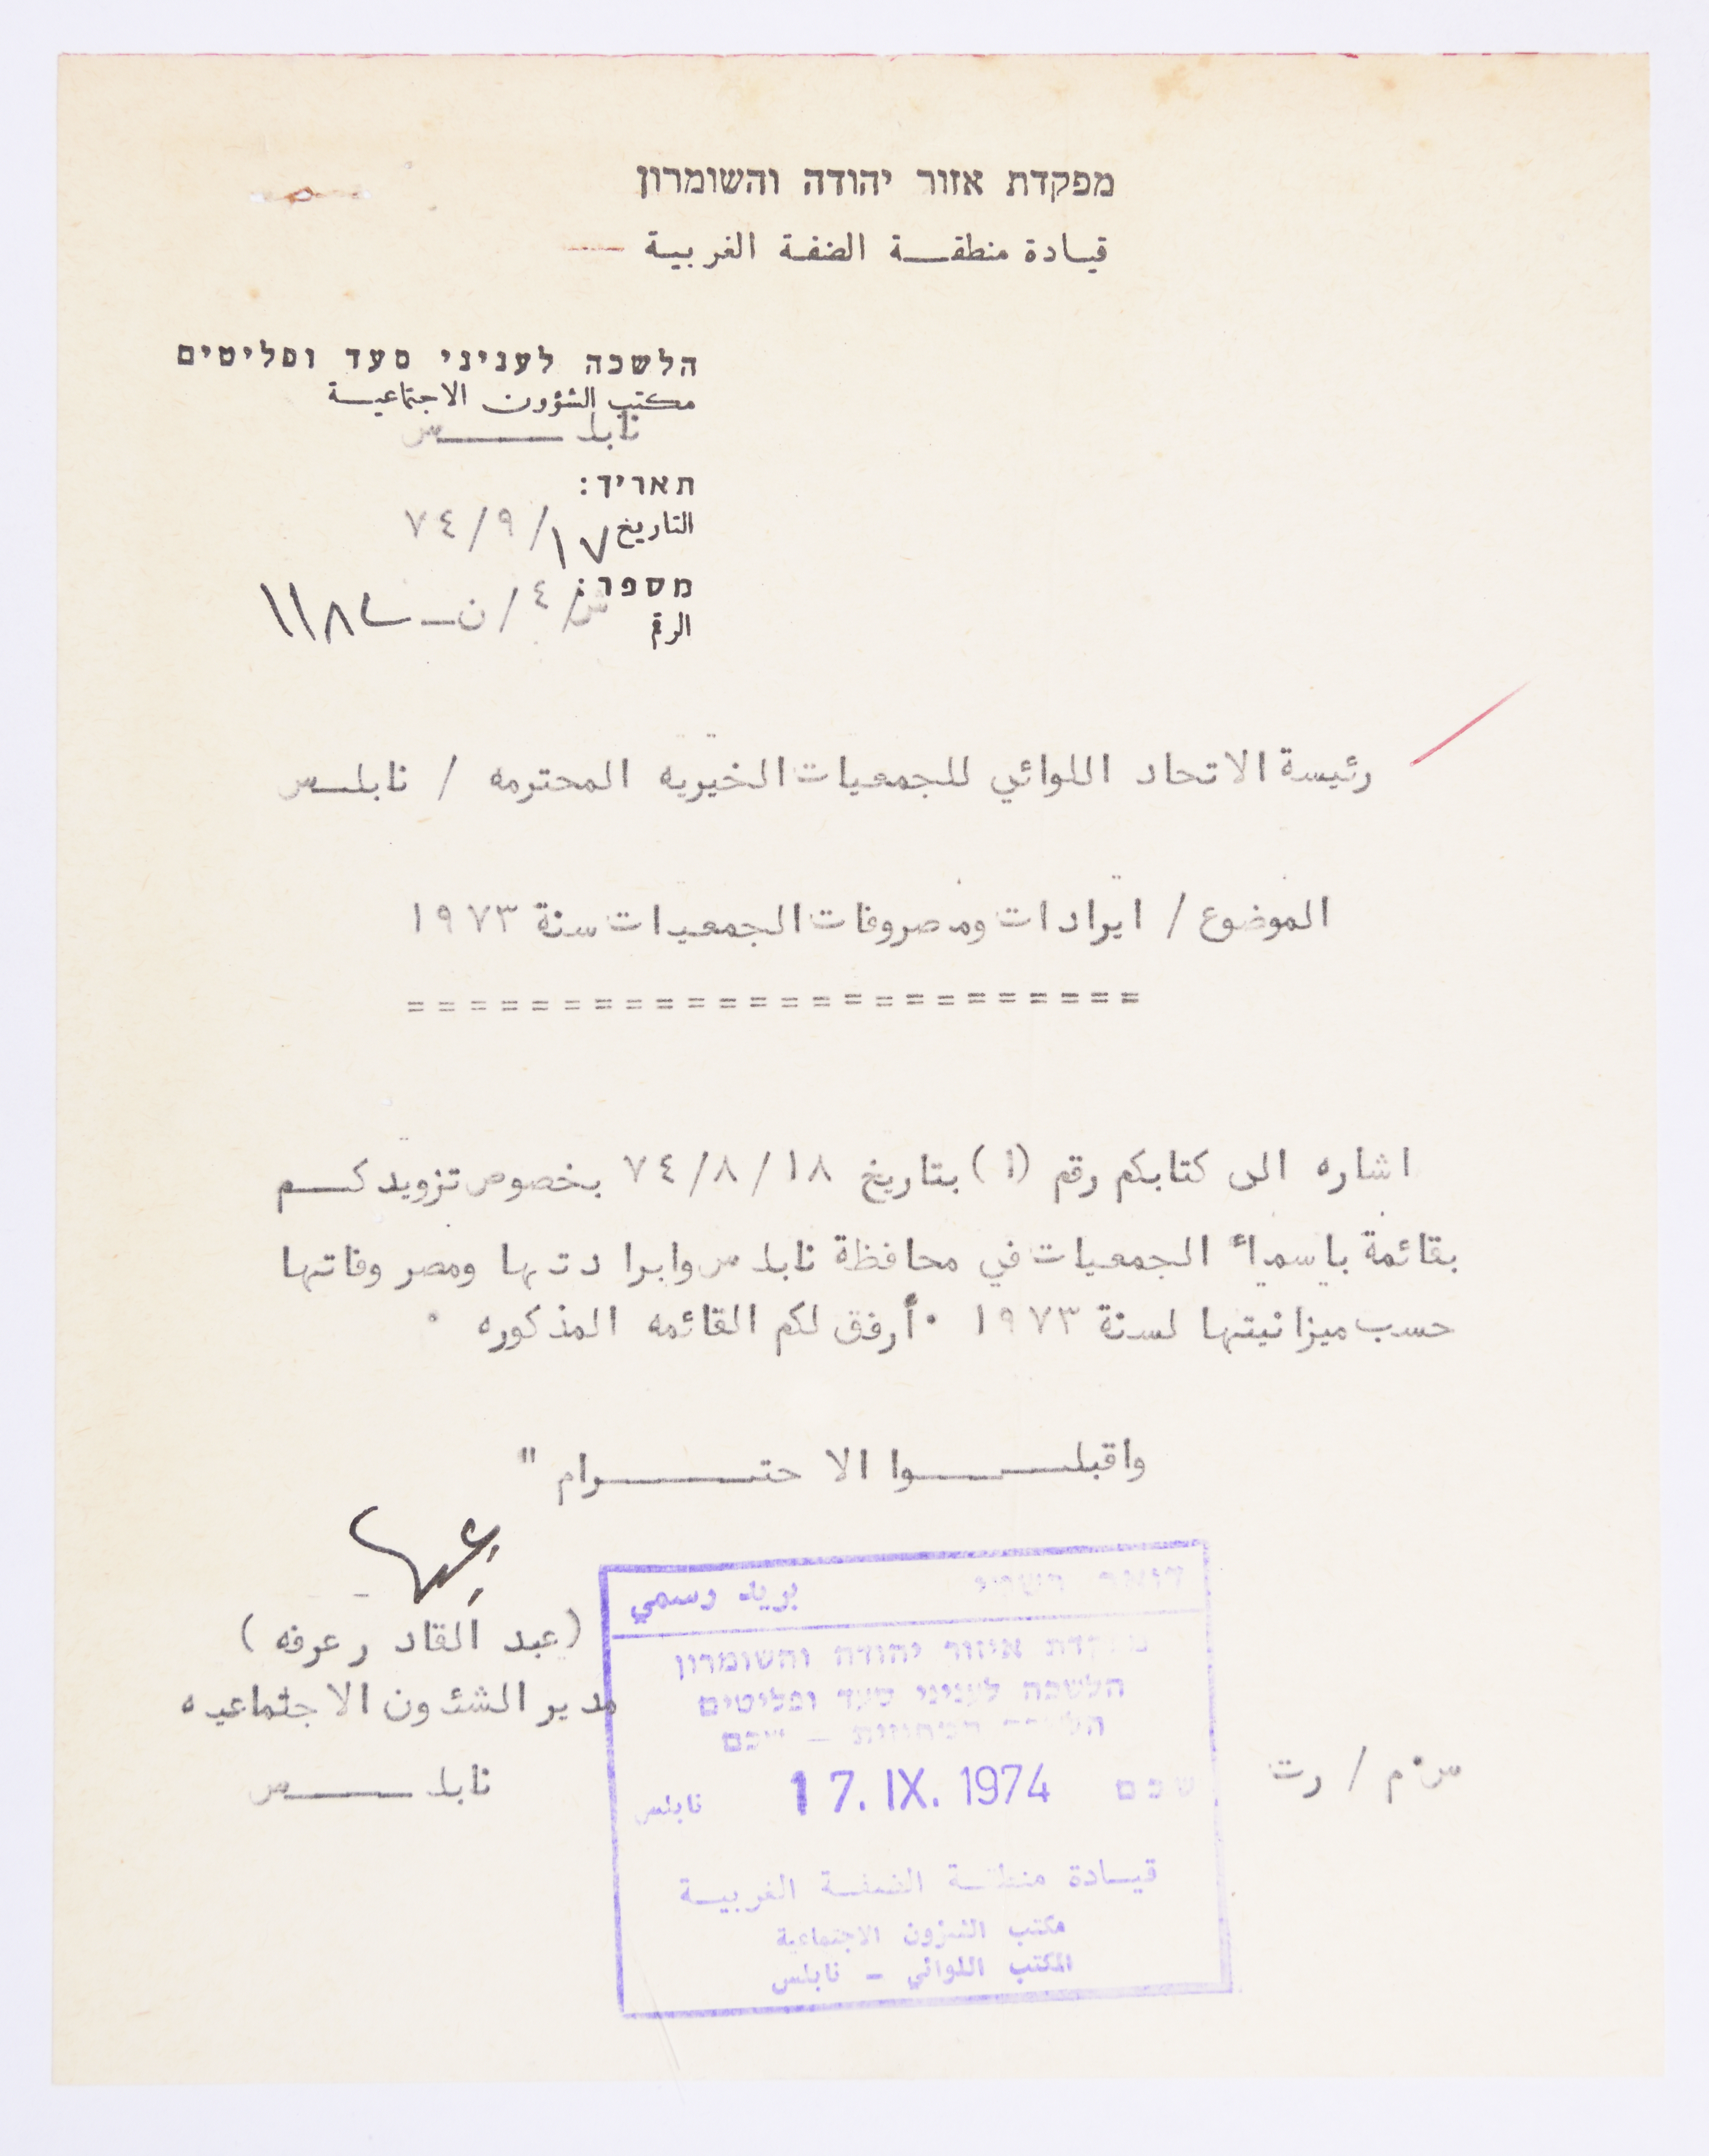 מפקדת אזור יהודה והשומרון
قيادة منطقة الضفة الغربية
הלשכה לעניני סעד ופליטים
مكتب الشؤون الاجتماعية
نابلس
תאריך:
التاريخ ١٧/٩/٧٤
מספר:
الرقم ش/٤/ن-
رئيسة الاتحاد اللوائي للجمعيات الخيريه المحترمه / نابلس
الموضوع / ايرادات ومصروفات الجمعيات سنة ١٩٧٣
========================
اشاره الى كتابكم رقم (١) بتاريخ ٧٤/٨/١٨ بخصوص تزويدكم
بقائمة باسماء الجمعيات في محافظة نابلس وايرادتها ومصروفاتها
حسب ميزانيتها لسنة ١٩٧٣ ٠ أرفق لكم القائمه المذكوره ٠
واقبلوا الاحترام "
(عبد القادر عرفه)
مدير الشئون الاجتماعيه
نابلس
س٠م / رت
דואר רשמי بريد رسمي
מפקדת איזור יהודה והשומרון
הלשכה לעניני סעד ופליטים
הלשכה המחוזית – שכם
שכם 17. IX. 1974 نابلس
قيادة منطقة الضفة الغربية
مكتب الشؤون الاجتماعية
المكتب اللوائي – نابلس